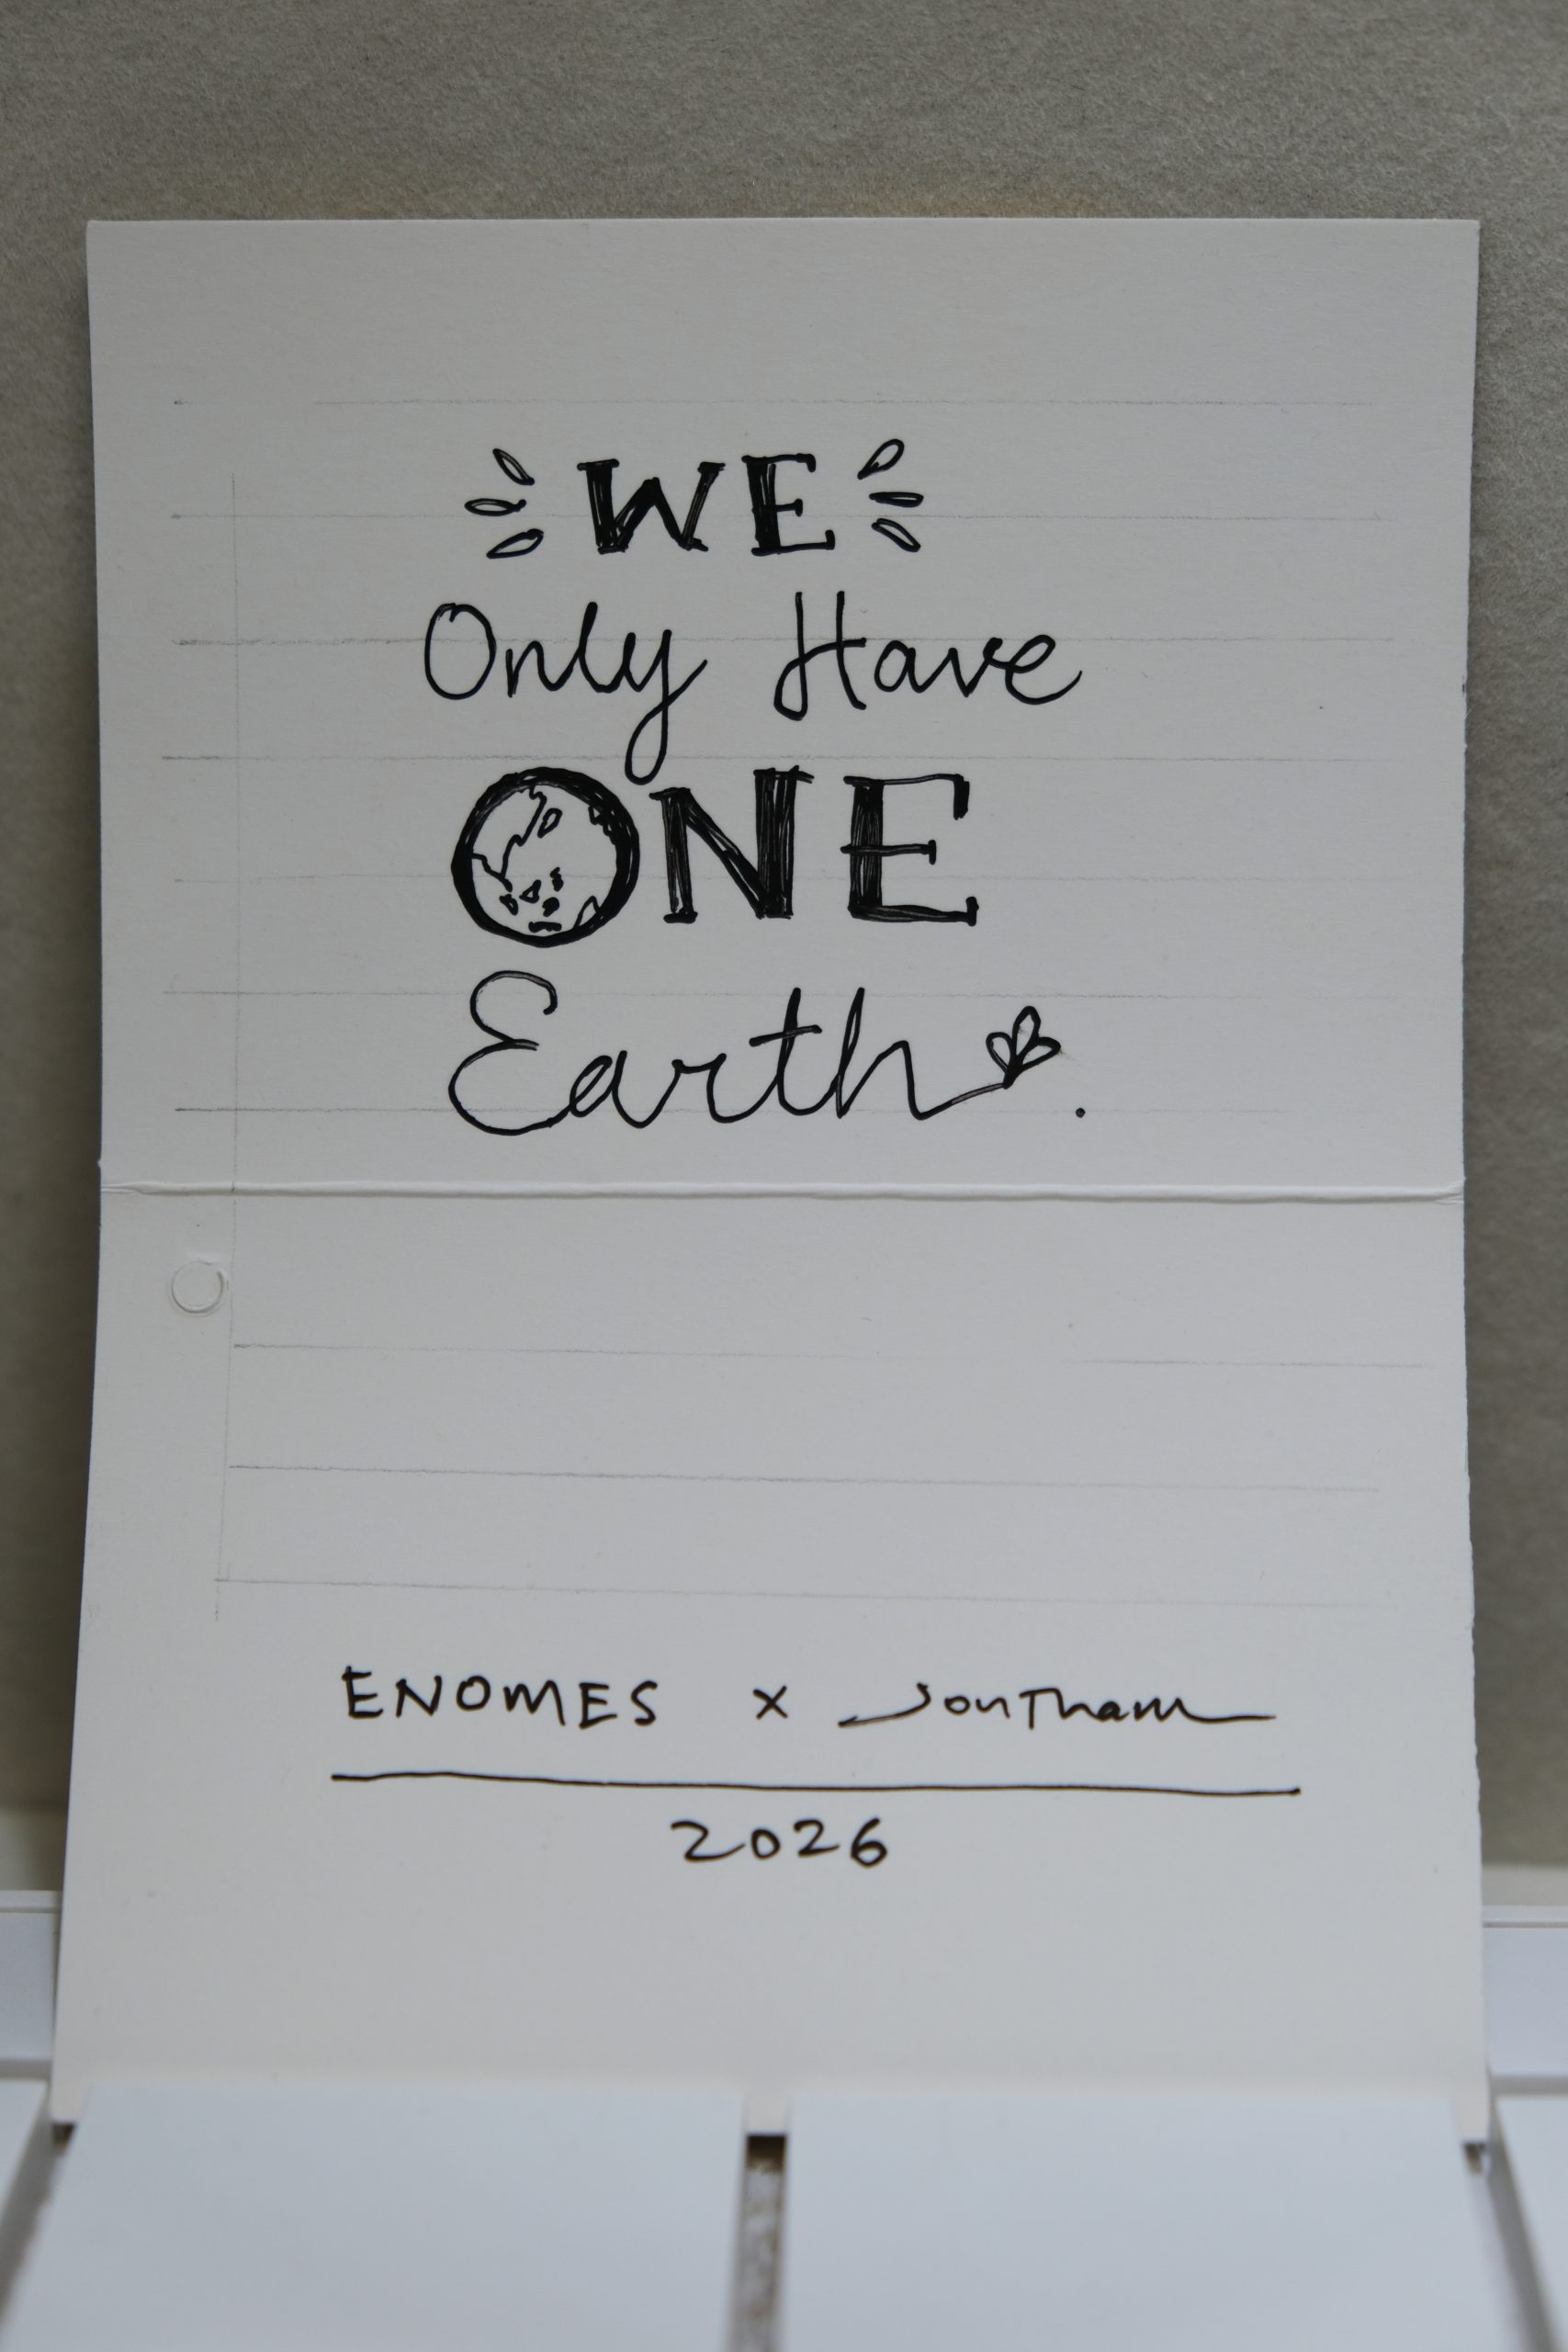 WE
Only Have
ONE
Earth.
ENOMES x JonTham
2026